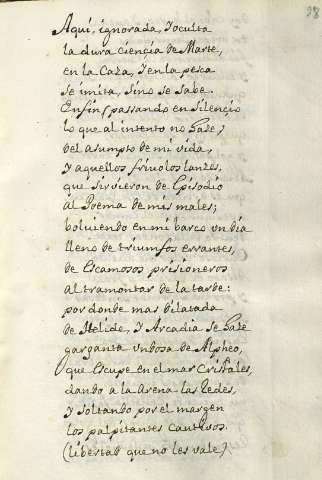 28
Aqui, ignorada, y oculta
la dura ciençia de Marte,
en la Caza, y en la pesca
se imita, sino se sabe.
En fin (passando en silençio
lo que al intento no haze,)
del asumpto de mi vida,
y aquellos friuolos lanzes,
que siruieron de Episodio
al Poema de mis males;
bolviendo en mi barco un dia
lleno de triumfos errantes,
de Escamosos prisioneros
al tramontar de la tarde:
por donde mas dilatada
de Helide, y Arcadia se haze
garganta undosa de Alpheo,
que escupe en el mar Cristales,
dando a la Arena las Redes,
y soltando por el margen
los palpitantes cautivos.
(libertad que no les vale)